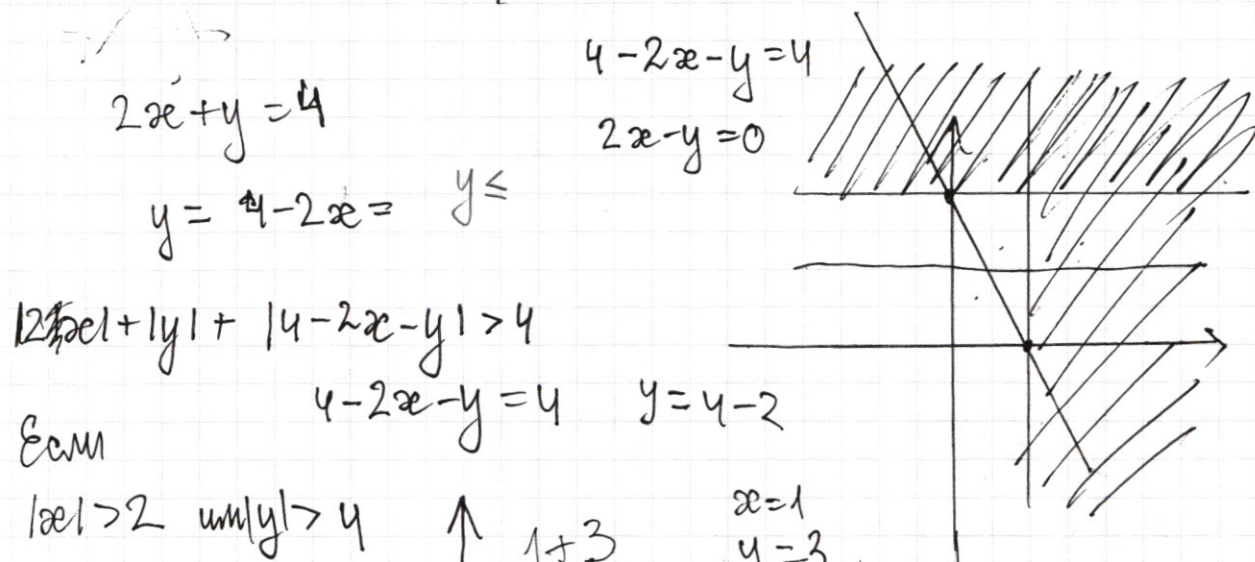 2x+y=4
y= 4-2x= y≤
4-2x-y=4
2x-y=0
|2x|+|y|+ |4-2x-y|>4
4-2x-y=4 y=4-2
Если
|x|>2 или |y|>4
1+3
x=1